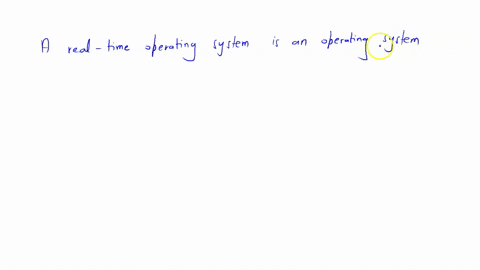 A real-time operating system is an operating system